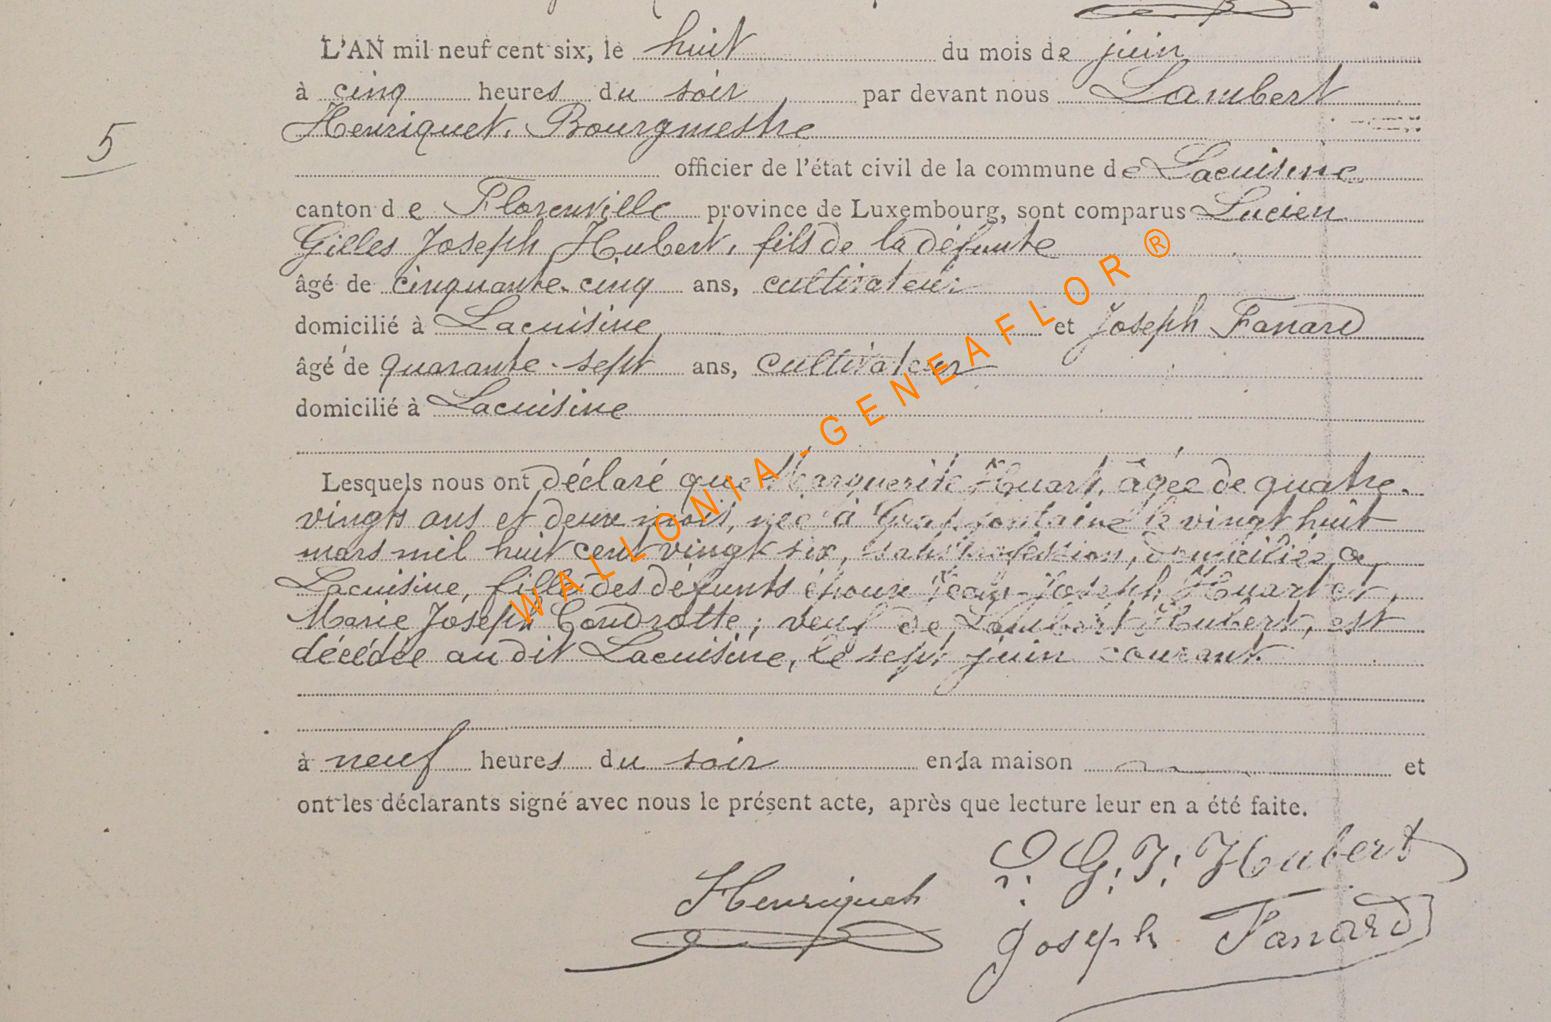 L'AN mil neuf cent six, le huit du mois de juin
à cinq heures du soir par devant nous Lambert
Henriquet, Bourgmestre
5
officier de l'état civil de la commune de Lacuisine
canton de Florenville province de Luxembourg, sont comparus Lucien
Gilles Joseph Hubert, fils de la défunte
âgé de cinquante-cinq ans, cultivateur
domicilié à Lacuisine et Joseph Fanard
âgé de quarante-sept ans, cultivateur
domicilié à Lacuisine
Lesquels nous ont déclaré que Marguerite Huart, âgée de quatre-
vingts ans et deux mois, née à Grapfontaine le vingt huit
mars mil huit cent vingt six, sans profession, domiciliée à
Lacuisine, fille des défunts époux Jean-Joseph Huart et
Marie Joseph Condrotte, veuf de Lambert Hubert, est
décédée au dit Lacuisine, le sept juin courant
à neuf heures du soir en la maison et
ont les déclarants signé avec nous le présent acte, après que lecture leur en a été faite.
L. G. J. Hubert
Henriquet
Joseph Fanard
WALLONIA-GENEAFLOR ®